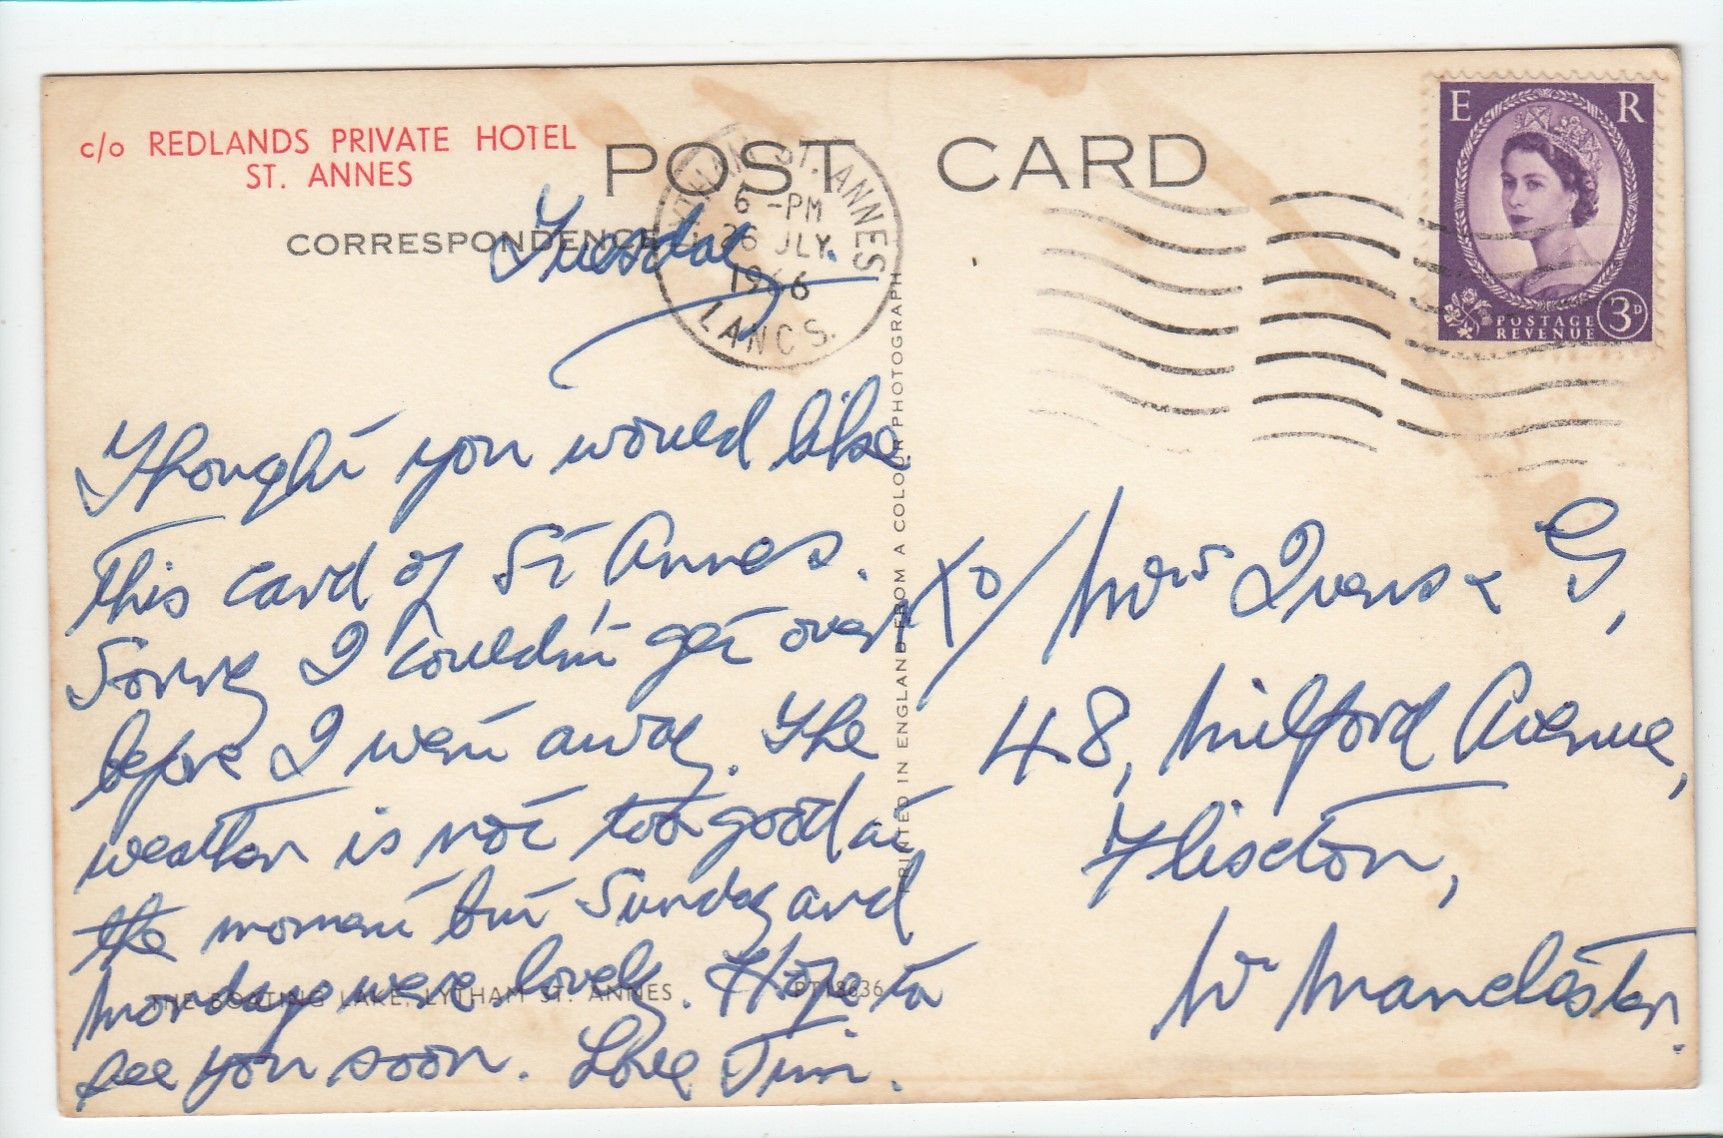 c/o REDLANDS PRIVATE HOTEL
ST. ANNES
POST CARD
CORRESPONDENCE
Tuesday.
LYTHAM ST. ANNES
6 -PM
26 JLY
1966
LANCS.
E R
POSTAGE
REVENUE
3D
Thought you would like
this card of St Annes.
Sorry I couldn't get over
before I went away. The
weather is not too good at
the moment but Sunday and
Monday were lovely. Hope to
see you soon. Love Jim.
PRINTED IN ENGLAND FROM A COLOUR PHOTOGRAPH
Mrs & G,
48, Milford Avenue,
Flixton,
Nr Manchester.
THE BOATING LAKE, LYTHAM ST. ANNES
PT18636